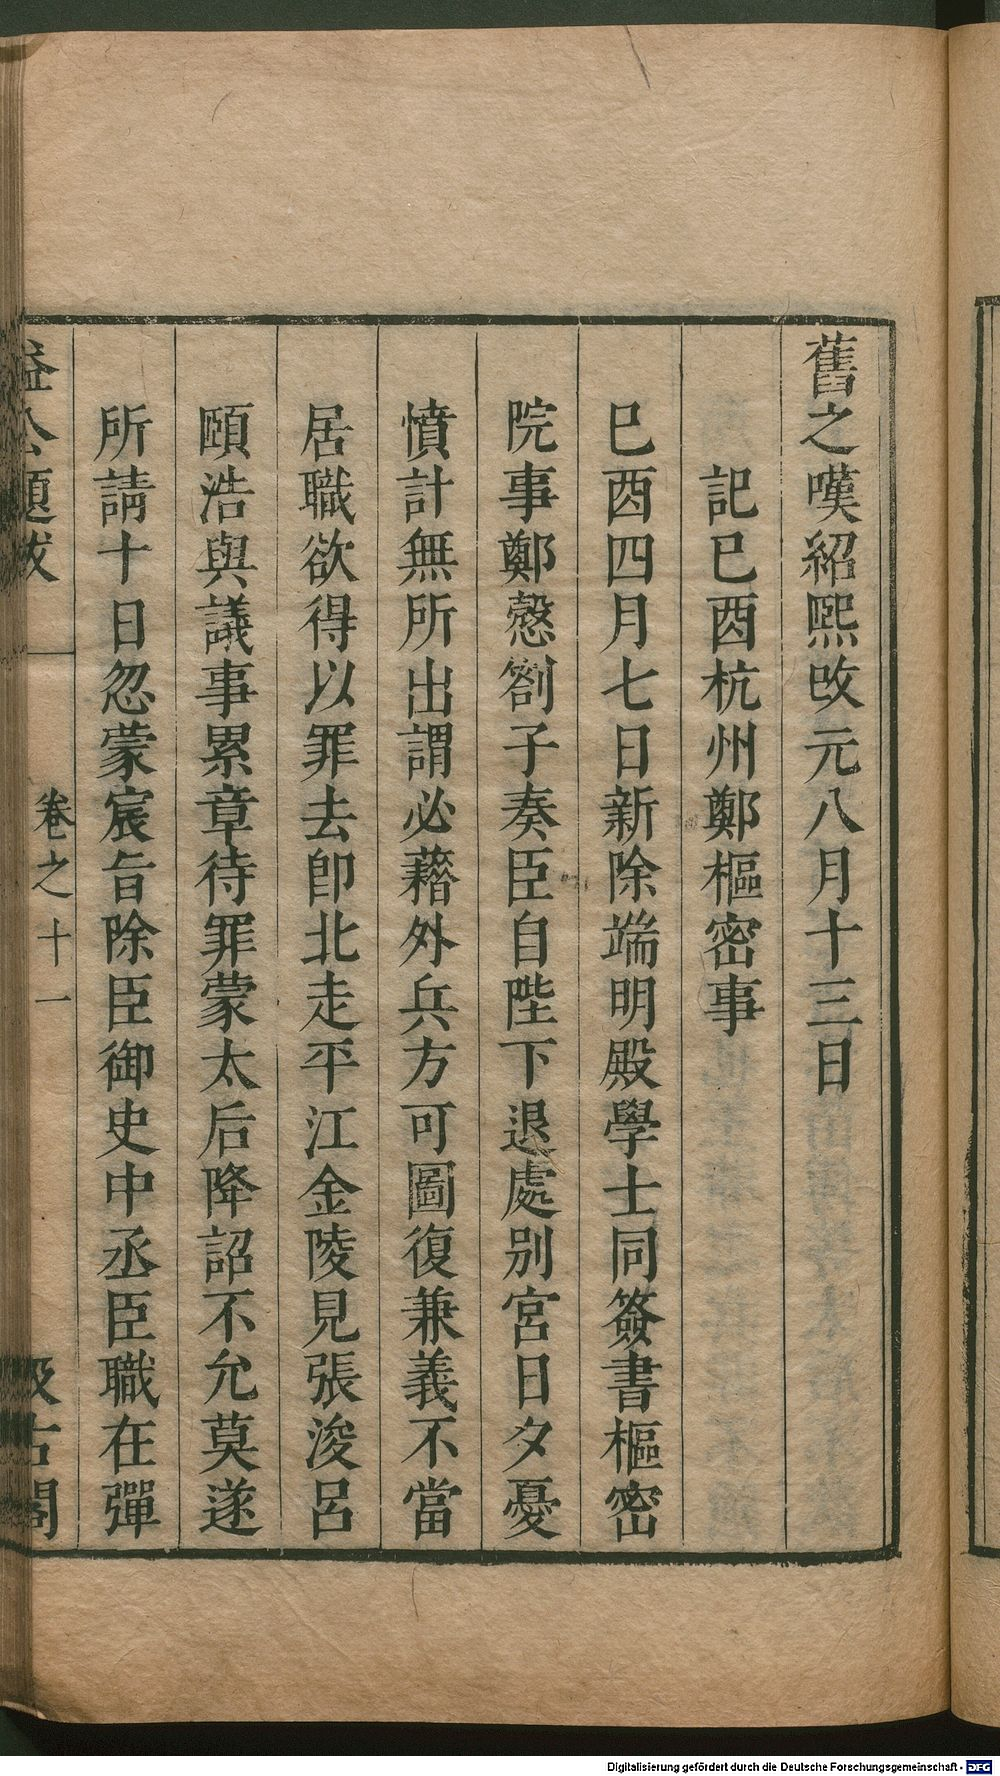 舊之嘆紹熙改元八月十三日
記已酉杭州鄭樞密事
巳酉四月七日新除端明殿學士同簽書樞密
院事鄭慤劄子奏臣自陛下退處别宮日夕憂
憤計無所出謂必藉外兵方可圖復兼義不當
居職欲得以罪去卽北走平江金陵見張浚呂
頤浩與議事累章待罪蒙太后降詔不允莫遂
所請十日忽蒙宸旨除臣御史中丞臣職在彈
益公題跋
卷之十一
汲古閣
Digitalisierung gefördert durch die Deutsche Forschungsgemeinschaft - DFG